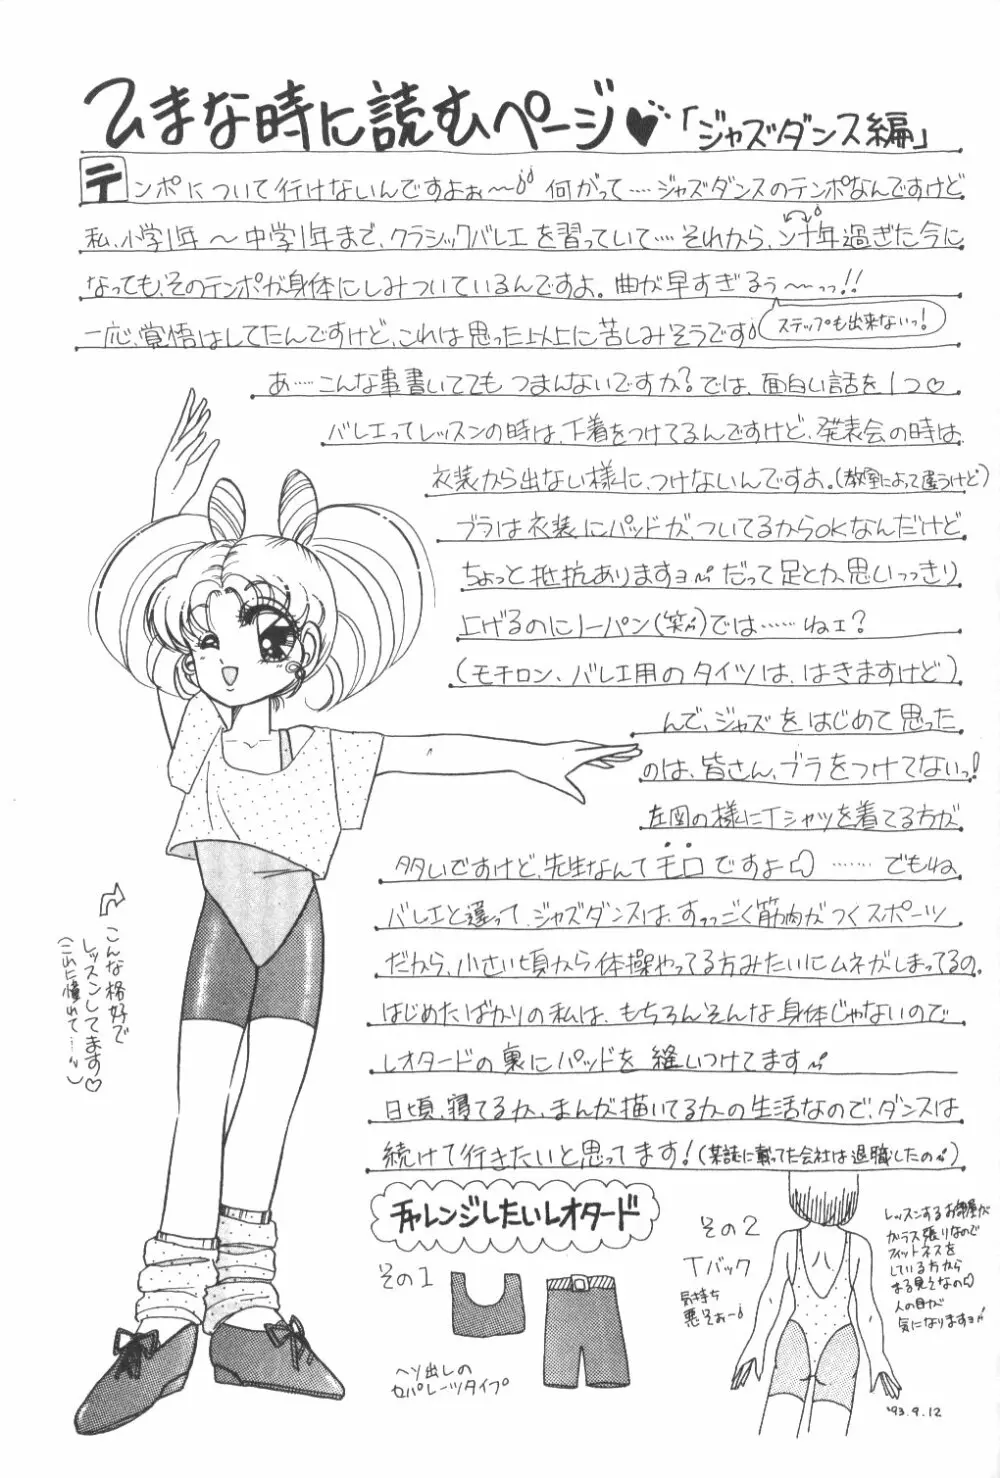 ひまな時に読むページ♥「ジャズダンス編」
テンポについて行けないんですよぉ〜 何がって……ジャズダンスのテンポなんですけど
私、小学1年〜中学1年まで、クラシックバレエを習っていて……それから、ン十年過ぎた今に
なっても、そのテンポが身体にしみついているんですよ。曲が早すぎるぅ〜っっ!!
一応、覚悟はしてたんですけど、これは思った以上に苦しみそうです
ステップも出来ないっ!
あ……こんな事書いててもつまんないですか?では、面白い話を1つ♡
バレエってレッスンの時は、下着をつけてるんですけど、発表会の時は、
衣装から出ない様に、つけないんですよ。(教室によって違うけど)
ブラは衣装にパッドが、ついてるからOKなんだけど
ちょっと抵抗ありますョ だって足とか、思いっっきり
上げるのにノーパン(笑)では……ねェ?
(モチロン、バレエ用のタイツは、はきますけど)
んで、ジャズをはじめて思った
のは、皆さん、ブラをつけてないっ!
左図の様にTシャツを着てる方が
多いですけど、先生なんてモロですよ ……でもね
バレエと違って、ジャズダンスは、すっっごく筋肉がつくスポーツ
だから、小さい頃から体操やってる方みたいにムネがしまってるの。
はじめたばかりの私は、もちろんそんな身体じゃないので
レオタードの裏にパッドを縫いつけてます
日頃、寝てるか、まんが描いてるかの生活なので、ダンスは
続けて行きたいと思ってます!(某誌に載ってた会社は退職したの)
こんな格好で
レッスンしてます♡
(これに憧れて……)
チャレンジしたいレオタード
その1
ヘソ出しの
セパレーツタイプ
その2
Tバック
気持ち
悪そぉー
レッスンするお部屋が
ガラス張りなので
フィットネスを
している方から
まる見えなの
人の目が
気になりますョ
'93.9.12